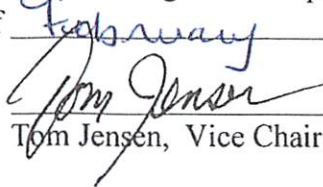 February
Tom Jensen
Tom Jensen, Vice Chair